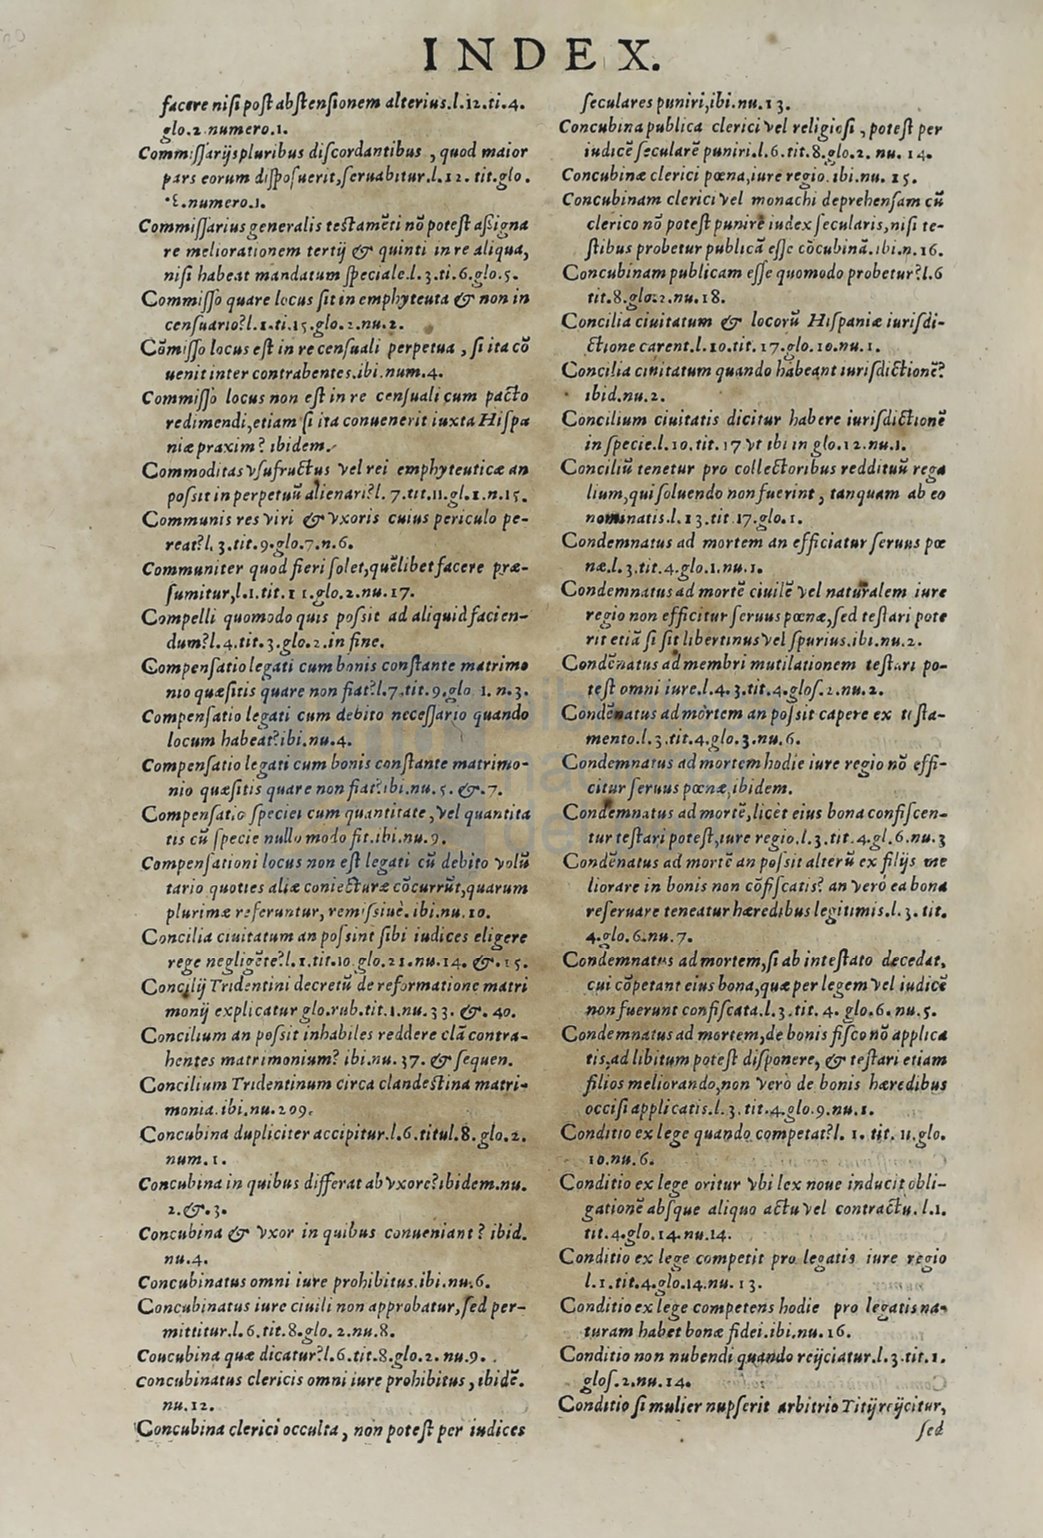 INDEX.
facere nisi post abstensionem alterius.l.12.ti.4.
glo.2.numero.1.
Commissarijs pluribus discordantibus , quod maior
pars eorum disposuerit, seruabitur.l.12. tit.glo.
numero.1.
Commissarius generalis testamēti nō potest assigna
re meliorationem tertij & quinti in re aliqua,
nisi habeat mandatum speciale.l.3.ti.6.glo.5.
Commisso quare locus sit in emphyteuta & non in
censuario?l.1.ti.15.glo.2.nu.2.
Cōmisso locus est in re censuali perpetua , si ita cō
uenit inter contrahentes.ibi.num.4.
Commisso locus non est in re censuali cum pacto
redimendi,etiam si ita conuenerit iuxta Hispa
niæ praxim? ibidem.
Commoditas vsufructus vel rei emphyteuticæ an
possit in perpetuū alienari?l. 7.tit.11.gl.1.n.15.
Communis res viri & vxoris cuius periculo pe-
reat?l.3.tit.9.glo.7.n.6.
Communiter quod fieri solet,quēlibet facere præ-
sumitur,l.1.tit.11.glo.2.nu.17.
Compelli quomodo quis possit ad aliquid facien-
dum?l.4.tit.3.glo.2.in fine.
Compensatio legati cum bonis constante matrimo
nio quæsitis quare non fiat?l.7.tit.9.glo 1. n.3.
Compensatio legati cum debito necessario quando
locum habeat?ibi.nu.4.
Compensatio legati cum bonis constante matrimo-
nio quæsitis quare non fiat?ibi.nu.5. &.7.
Compensatio speciei cum quantitate ,vel quantita
tis cū specie nullo modo fit.ibi.nu.9.
Compensationi locus non est legati cū debito volū
tario quoties aliæ coniecturæ cōcurrūt,quarum
plurimæ referuntur, remissiuè. ibi.nu.10.
Concilia ciuitatum an possint sibi iudices eligere
rege negligēte?l.1.tit.10.glo.21.nu.14. &.15.
Concilij Tridentini decretū de reformatione matri
monij explicatur glo.rub.tit.1.nu.33. &. 40.
Concilium an possit inhabiles reddere clā contra-
hentes matrimonium? ibi.nu.37. & sequen.
Concilium Tridentinum circa clandestina matri-
monia.ibi.nu.209.
Concubina dupliciter accipitur.l.6.titul.8.glo.2.
num.1.
Concubina in quibus differat ab vxore?ibidem.nu.
2.&.3.
Concubina & vxor in quibus conueniant? ibid.
nu.4.
Concubinatus omni iure prohibitus.ibi.nu.6.
Concubinatus iure ciuili non approbatur,sed per-
mittitur.l.6.tit.8.glo.2.nu.8.
Coucubina quæ dicatur?l.6.tit.8.glo.2.nu.9.
Concubinatus clericis omni iure prohibitus, ibidē.
nu.12.
Concubina clerici occulta, non potest per iudices
seculares puniri,ibi.nu.13.
Concubina publica clerici vel religiosi , potest per
iudicē secularē puniri.l.6.tit.8.glo.2. nu. 14.
Concubinæ clerici pœna,iure regio.ibi.nu. 15.
Concubinam clerici vel monachi deprehensam cū
clerico nō potest punire iudex secularis,nisi te-
stibus probetur publicā esse cōcubinā.ibi.n.16.
Concubinam publicam esse quomodo probetur?l.6
tit.8.glo.2.nu.18.
Concilia ciuitatum & locorū Hispaniæ iurisdi-
ctione carent.l.10.tit.17.glo.10.nu.1.
Concilia ciuitatum quando habeant iurisdictionē?
ibid.nu.2.
Concilium ciuitatis dicitur habere iurisdictionē
in specie.l.10.tit.17 vt ibi in glo.12.nu.1.
Conciliū tenetur pro collectoribus reddituū rega
lium,qui soluendo non fuerint, tanquam ab eo
nominatis.l.13.tit.17.glo.1.
Condemnatus ad mortem an efficiatur seruus pœ
næ.l.3.tit.4.glo.1.nu.1.
Condemnatus ad mortē ciuilē vel naturalem iure
regio non efficitur seruus pœnæ,sed testari pote
rit etiā si sit libertinus vel spurius.ibi.nu.2.
Condēnatus ad membri mutilationem testari po-
test omni iure.l.4.3.tit.4.glos.2.nu.2.
Condēnatus ad mortem an possit capere ex testa-
mento.l.3.tit.4.glo.3.nu.6.
Condemnatus ad mortem hodie iure regio nō effi-
citur seruus pœnæ,ibidem.
Condemnatus ad mortē,licèt eius bona confiscen-
tur testari potest,iure regio.l.3.tit.4.gl.6.nu.3
Condēnatus ad mortē an possit alterū ex filijs me
liorare in bonis non cōfiscatis? an verò ea bona
reseruare teneatur hæredibus legitimis.l.3.tit.
4.glo.6.nu.7.
Condemnatus ad mortem,si ab intestato decedat,
cui cōpetant eius bona,quæ per legem vel iudicē
non fuerunt confiscata.l.3.tit.4. glo.6.nu.5.
Condemnatus ad mortem,de bonis fisco nō applica
tis,ad libitum potest disponere, & testari etiam
filios meliorando,non verò de bonis hæredibus
occisi applicatis.l.3.tit.4.glo.9.nu.1.
Conditio ex lege quando competat?l. 1. tit. 11.glo.
10.nu.6.
Conditio ex lege oritur vbi lex noue inducit obli-
gationē absque aliquo actu vel contractu.l.1.
tit.4.glo.14.nu.14.
Conditio ex lege competit pro legatis iure regio
l.1.tit.4.glo.14.nu.13.
Conditio ex lege competens hodie pro legatis na-
turam habet bonæ fidei.ibi.nu.16.
Conditio non nubendi quando reijciatur.l.3.tit.1.
glos.2.nu.14.
Conditio si mulier nupserit arbitrio Titij reijcitur,
sed